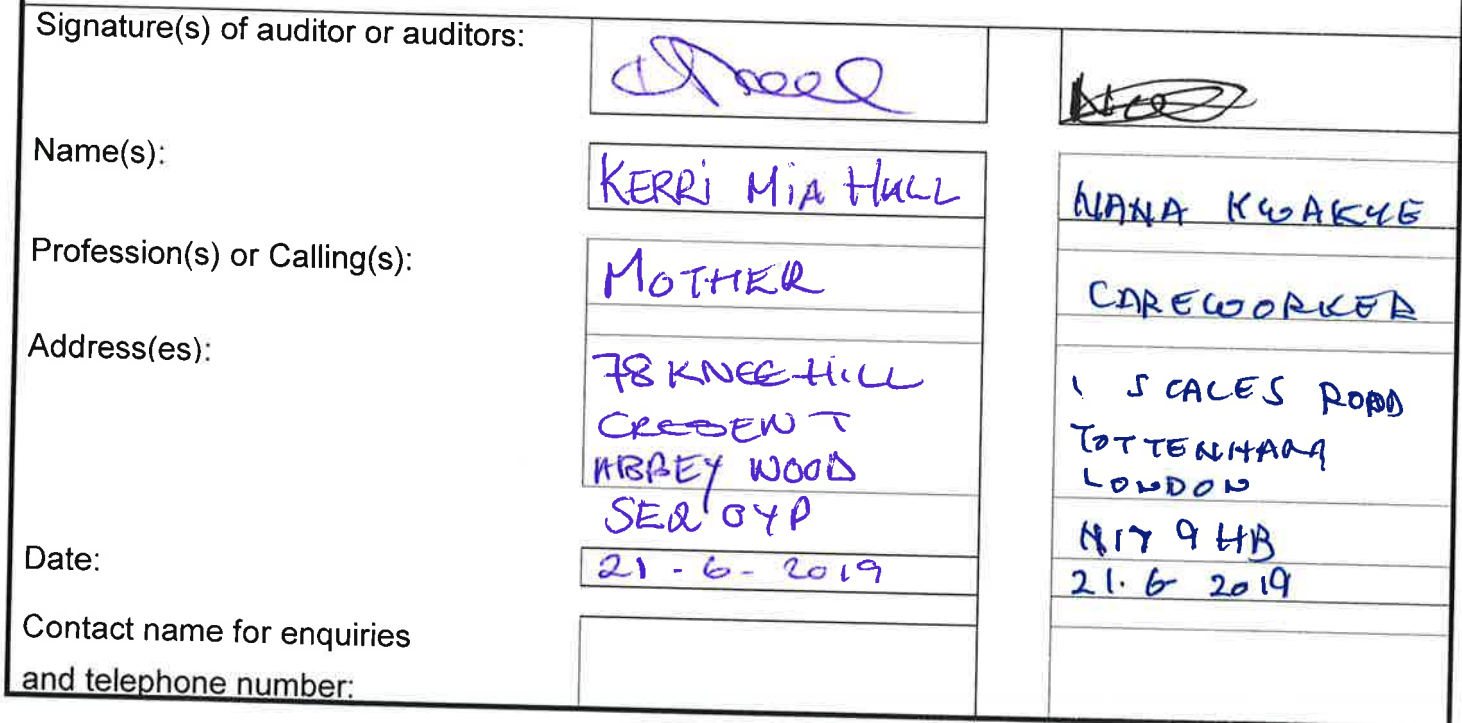 Signature(s) of auditor or auditors:
Name(s):
KERRi MiA HULL
NANA KWAKYE
Profession(s) or Calling(s):
MOTHER
CAREWORKER
Address(es):
78 KNEE HiLL
CRESENT
ABBEY WOOD
SE2 0YP
1 SCALES ROAD
TOTTENHAM
LONDON
N17 9HB
Date:
21-6-2019
21.6 2019
Contact name for enquiries
and telephone number: